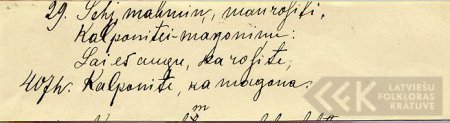 29. Sēhj, mahmiņ, man rohziti,
Kalponitei-magoninu:
Lai es augu, ka rohzite,
407h. Kalponite, ka magona.
LATVIEŠU
FOLKLORAS
KRĀTUVE